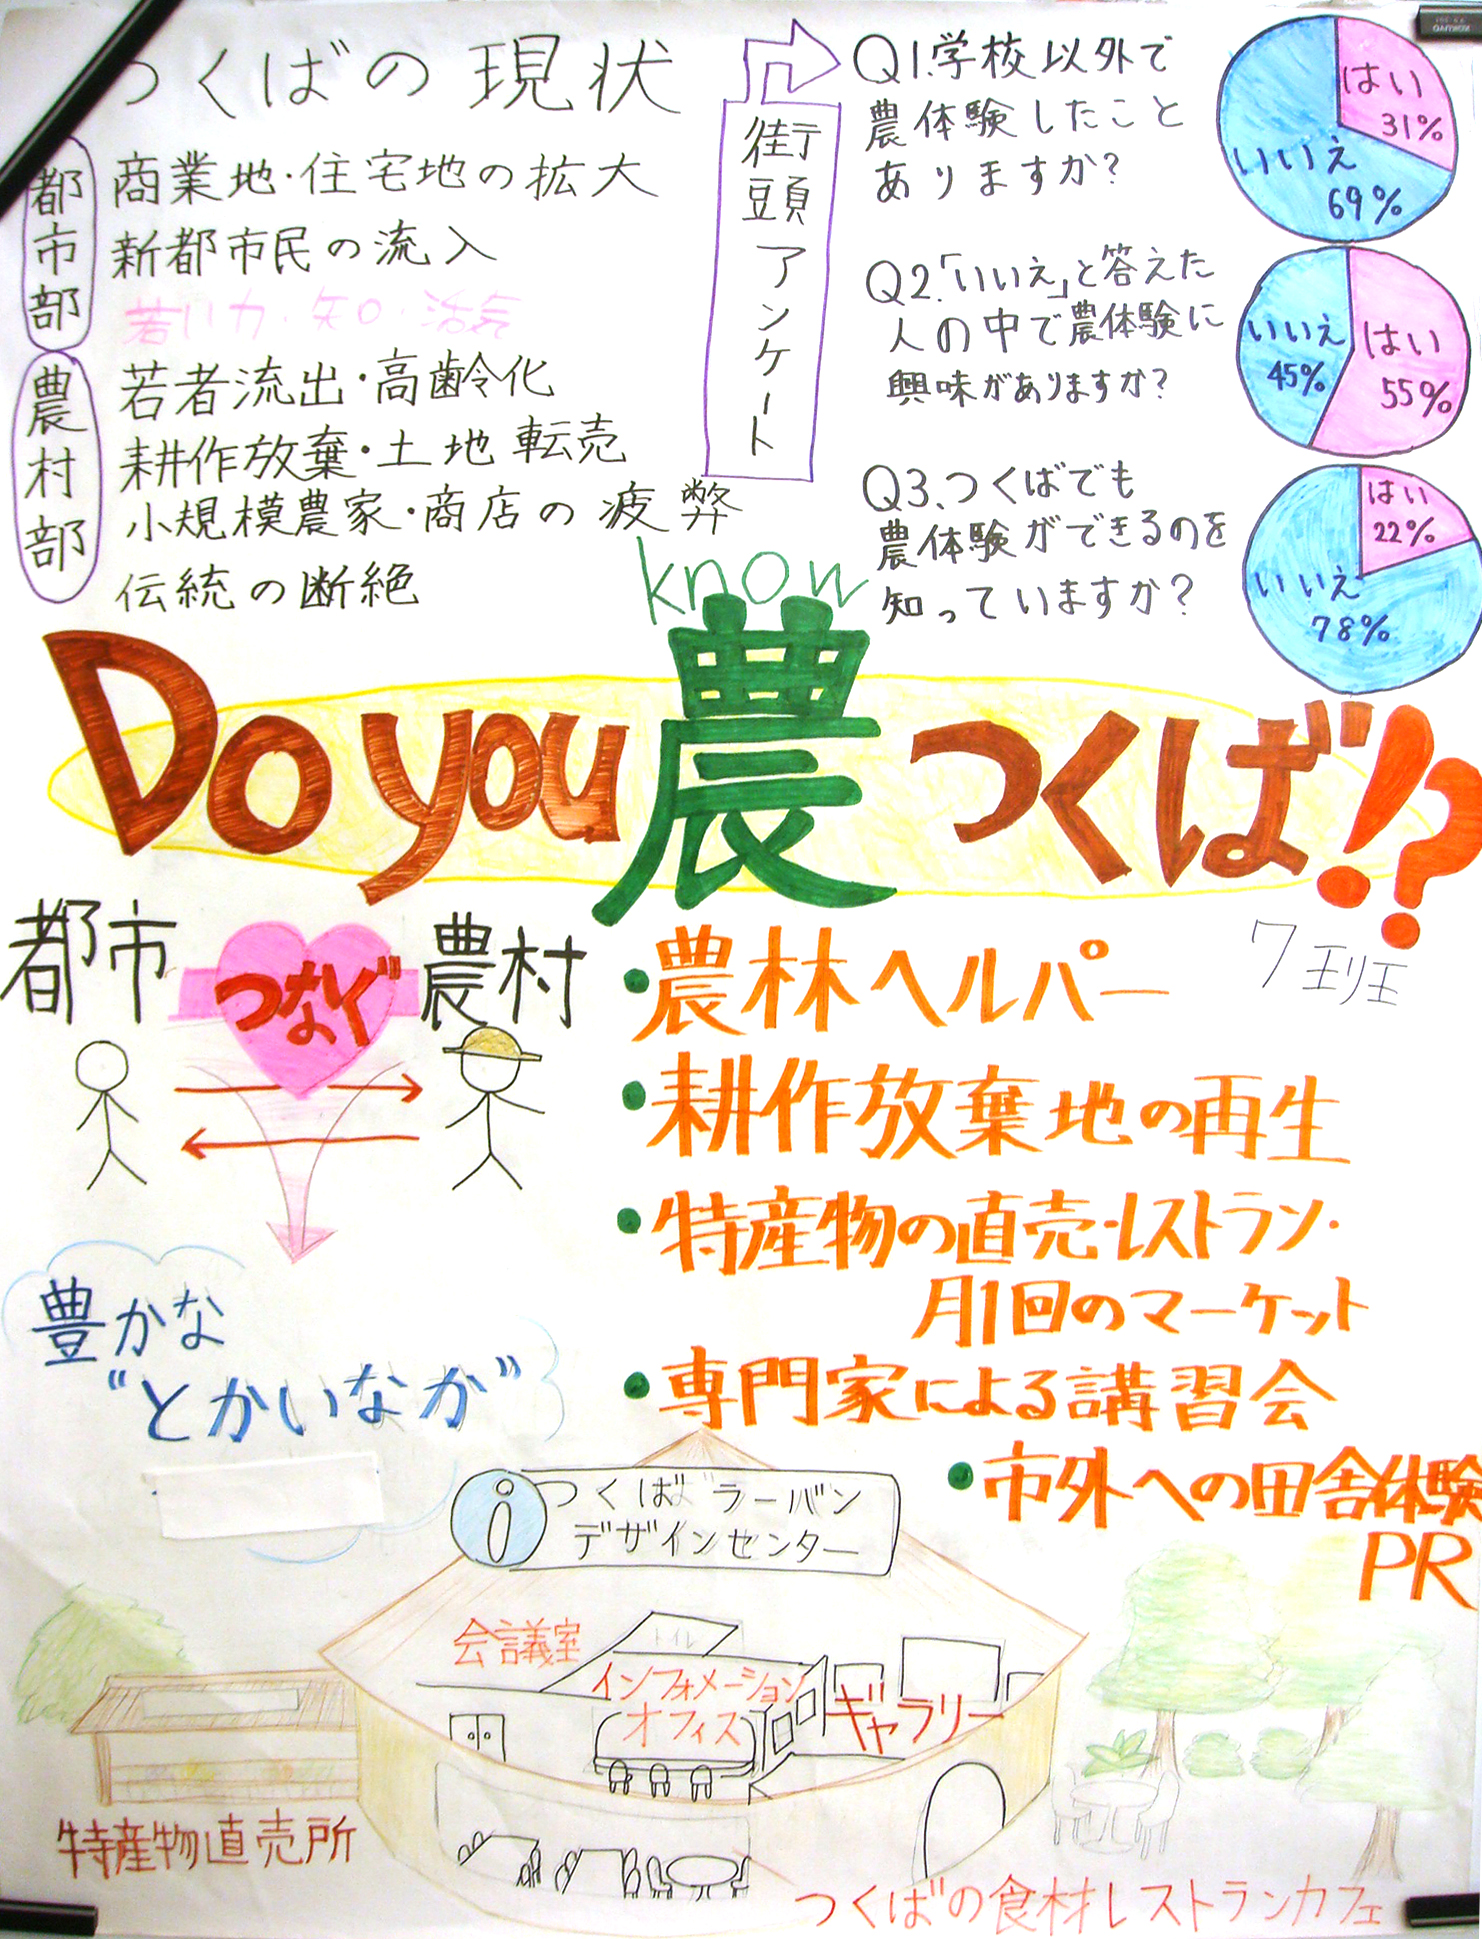 つくばの現状
都市部
商業地・住宅地の拡大
新都市民の流入
若い力・知口・活気
農村部
若者流出・高齢化
耕作放棄・土地転売
小規模農家・商店の疲弊
伝統の断絶
街頭アンケート
Q1.学校以外で
農体験したこと
ありますか?
はい
31%
いいえ
69%
Q2.「いいえ」と答えた
人の中で農体験に
興味がありますか?
いいえ
45%
はい
55%
Q3、つくばでも
農体験ができるのを
知っていますか?
はい
22%
いいえ
78%
know
Do you 農 つくば!?
7班
都市 つなぐ 農村
豊かな
"とかいなか"
・農林ヘルパー
・耕作放棄地の再生
・特産物の直売・レストラン・
月1回のマーケット
・専門家による講習会
・市外への田舎体験
PR
i つくばラーバン
デザインセンター
会議室
トイレ
インフォメーション
オフィス
ギャラリー
特産物直売所
つくばの食材レストランカフェ